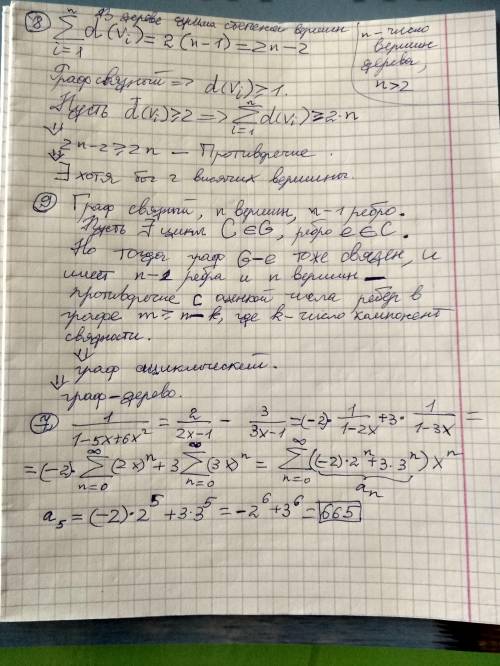 ⑧ В дереве сумма степеней вершин
∑_{i=1}^{n} d(v_i) = 2(n-1) = 2n-2
n - число вершин дерева, n>2
Граф связный => d(v_i) ≥ 1.
Пусть d(v_i) ≥ 2 => ∑_{i=1}^{n} d(v_i) ≥ 2·n
⇓
2n-2 ≥ 2n — Противоречие.
⇓
∃ хотя бы 2 висячих вершины.
⑨ Граф связный, n вершин, n-1 ребро.
Пусть ∃ цикл C∈G, ребро e∈C.
Но тогда граф G-e тоже связен, и
имеет n-2 ребра и n вершин —
противоречие с оценкой числа рёбер в
графе m ≥ n-k, где k-число компонент
связности.
⇓
граф ациклический.
⇓
граф-дерево.
⑦ 1/(1-5x+6x²) = 2/(2x-1) - 3/(3x-1) = (-2)·1/(1-2x) + 3·1/(1-3x) =
= (-2)·∑_{n=0}^{∞} (2x)^n + 3∑_{n=0}^{∞} (3x)^n = ∑_{n=0}^{∞} ((-2)·2^n + 3·3^n) x^n
a_n
a_5 = (-2)·2^5 + 3·3^5 = -2^6 + 3^6 = 665